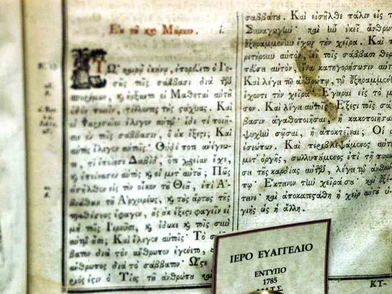 Ἐκ τοῦ κατὰ Μάρκον.
Τῷ καιρῷ ἐκείνῳ, ἐπορεύετο ὁ Ἰη-
σοῦς τοῖς σάββασι διὰ τῶν
σπορίμων, καὶ ἤρξαντο οἱ Μαθηταὶ αὐτοῦ
ὁδὸν ποιεῖν, τίλλοντες τοὺς στάχυας. Καὶ
οἱ Φαρισαῖοι ἔλεγον αὐτῷ· ἴδε τί ποιοῦ-
σιν ἐν τοῖς σάββασιν, ὃ οὐκ ἔξεστι; Καὶ
αὐτὸς ἔλεγεν αὐτοῖς· Οὐδέποτε ἀνέγνω-
τε, τί ἐποίησε Δαβὶδ, ὅτε χρείαν ἔσχε,
καὶ ἐπείνασεν αὐτὸς καὶ οἱ μετ' αὐτοῦ; Πῶς
εἰσῆλθεν εἰς τὸν οἶκον τοῦ Θεοῦ, ἐπὶ Ἀ-
βιάθαρ τοῦ Ἀρχιερέως, καὶ τοὺς ἄρτους τῆς
προθέσεως ἔφαγεν, οὓς οὐκ ἔξεστι φαγεῖν εἰ
μὴ τοῖς Ἱερεῦσι, καὶ ἔδωκε καὶ τοῖς σὺν
αὐτῷ οὖσι; Καὶ ἔλεγεν αὐτοῖς· Τὸ σάβ-
βατον διὰ τὸν ἄνθρωπον ἐγένετο, οὐχ ὁ
ἄνθρωπος διὰ τὸ σάββατον· Ὥστε
ριός ἐστιν ὁ Υἱὸς τοῦ ἀνθρώπου καὶ
σαββάτου. Καὶ εἰσῆλθε πάλιν εἰς τ
Συναγωγὴν καὶ ἦν ἐκεῖ ἄνθρω
ἐξηραμμένην ἔχων τὴν χεῖρα. Καὶ
σάββασι θεραπεύσει
αὐτὸν, ἵνα κατηγορήσωσιν αὐτοῦ
Καὶ λέγει τῷ ἀνθρώπῳ, τῷ ἐξηραμμέν
ἔχοντι τὴν χεῖρα· Ἔγειραι εἰς τὸ μ
Καὶ λέγει αὐτοῖς· Ἔξεστι τοῖς σάβ
βασιν ἀγαθοποιῆσαι ἢ κακοποιῆσαι
ψυχὴν σῶσαι, ἢ ἀποκτεῖναι; Οἱ
ἐσιώπων. Καὶ περιβλεψάμενος αὐτοὺς
μετ' ὀργῆς, συλλυπούμενος ἐπὶ τῇ πω
σει τῆς καρδίας αὐτῶν, λέγει τῷ ἀνθ
πῳ· Ἔκτεινον τὴν χεῖρά σου· καὶ
νεν· καὶ ἀποκατεστάθη ἡ χεὶρ αὐτοῦ
γιὴς ὡς ἡ ἄλλη.
ΙΕΡΟ ΕΥΑΓΓΕΛΙΟ
ΕΝΤΥΠΟ
1785